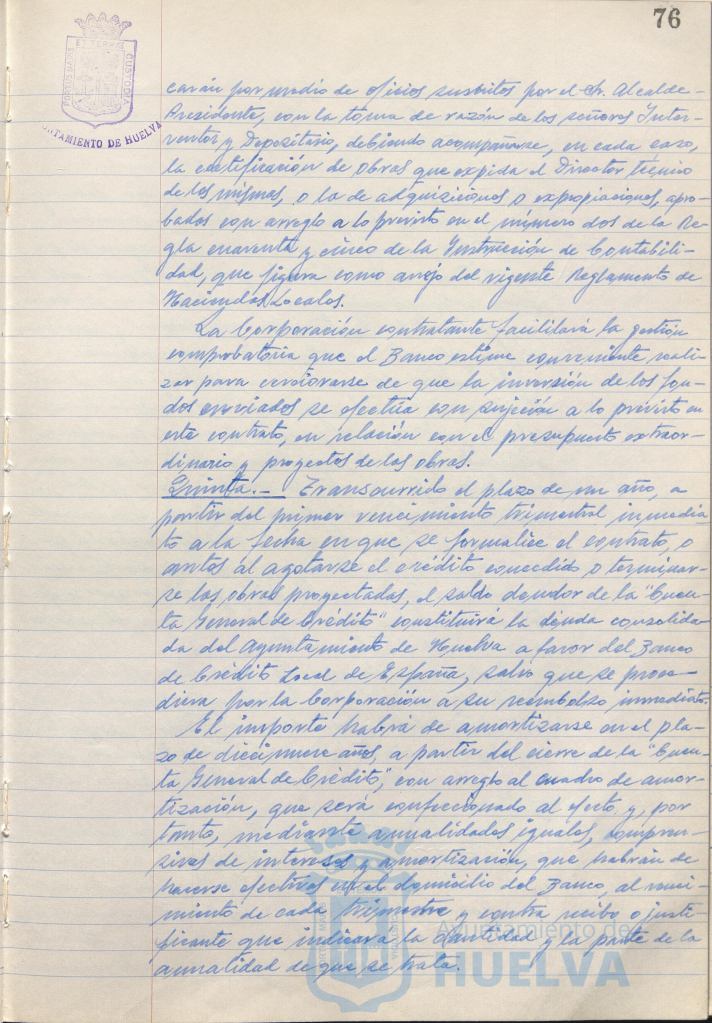 76
PORTUS MARIS ET TERRE CUSTODIA
AYUNTAMIENTO DE HUELVA
carán por medio de oficios suscritos por el Sr. Alcalde-
Presidente, con la toma de razón de los señores Inter-
ventor y Depositario, debiendo acompañarse, en cada caso,
la certificación de obras que expida el Director técnico
de las mismas, o la de adquisiciones o expropiaciones, apro-
badas con arreglo a lo previsto en el número dos de la Re-
gla cuarenta y cinco de la Instrucción de Contabili-
dad, que figura como anejo del vigente Reglamento de
Haciendas Locales.
La Corporación contratante facilitará la gestión
comprobatoria que el Banco estime conveniente reali-
zar para cerciorarse de que la inversión de los fon-
dos enviados se efectúa con sujeción a lo previsto en
este contrato, en relación con el presupuesto extraor-
dinario y proyectos de las obras.
Quinta.- Transcurrido el plazo de un año, a
partir del primer vencimiento trimestral inmedia-
to a la fecha en que se formalice el contrato, o
antes al agotarse el crédito concedido o terminar-
se las obras proyectadas, el saldo deudor de la "Cuen-
ta General de Crédito" constituirá la deuda consolida-
da del Ayuntamiento de Huelva a favor del Banco
de Crédito Local de España, salvo que se proce-
diera por la Corporación a su reembolso inmediato.
El importe habrá de amortizarse en el pla-
zo de diecinueve años, a partir del cierre de la "Cuen-
ta General de Crédito", con arreglo al cuadro de amor-
tización, que será confeccionado al efecto y, por
tanto, mediante anualidades iguales, compren-
sivas de intereses y amortización, que habrán de
hacerse efectivas en el domicilio del Banco, al venci-
miento de cada trimestre y contra recibo o justi-
ficante que indicará la cantidad y la parte de la
anualidad de que se trata.
Ayuntamiento de
HUELVA